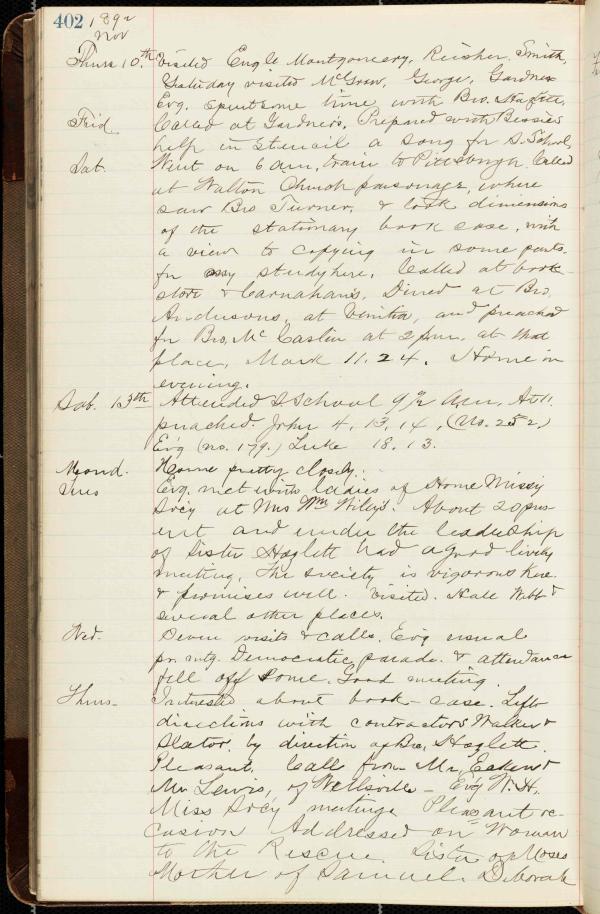 402 1892
Nov
Thurs 10.th Visited Engle Montgomery, Reisher, Smith,
Yesterday visited McGrew, George, Gardner
Evg. spent some time with Bro. Hazlett.
Frid. Called at Gardners, Prepared with Bessies
help in stencil a song for S. School,
Sat. Went on 6 a.m. train to Pittsburgh. Called
at Walton Church parsonage, where
saw Bro Turner, & took dimensions
of the stationary book case, with
a view to copying in some parts.
for my study here. Called at book
store & Carnahan's, Dined at Bro.
Andersons, at Venitia, and preached
for Bro. Mc Caslin at 2 p.m. at that
place, Mark 11. 24. Home in
evening.
Sab. 13th Attended S School 9½ a.m. At 11.
preached. John 4. 13, 14, (No. 252)
Evg (no. 179.) Luke 18. 13.
Mond. Home pretty closely.
Tues Evg. met with ladies of Home Missy
Socy at Mrs Wm Wiley's. About 20 pres-
ent and under the leadership
of Sister Hazlett had a good lively
meeting. The society is vigorous here
& promises well. Visited. Hall Webb &
several other places.
Wed. Seven visits & calls. Evg usual
pr. mtg. Democratic parade. & attendance
fell off some. Good meeting.
Thurs- Interested about book-case. Left
directions with contractors Walker &
Slator, by direction of Bro. Hazlett.
Pleasant Call from Mr. &
Mr Lewis, of Wellsville - Evg W. H.
Miss Socy meeting. Pleasant oc-
casion Addressed on Woman
to the Rescue. Sister of Moses
Mother of Samuel. Deborah